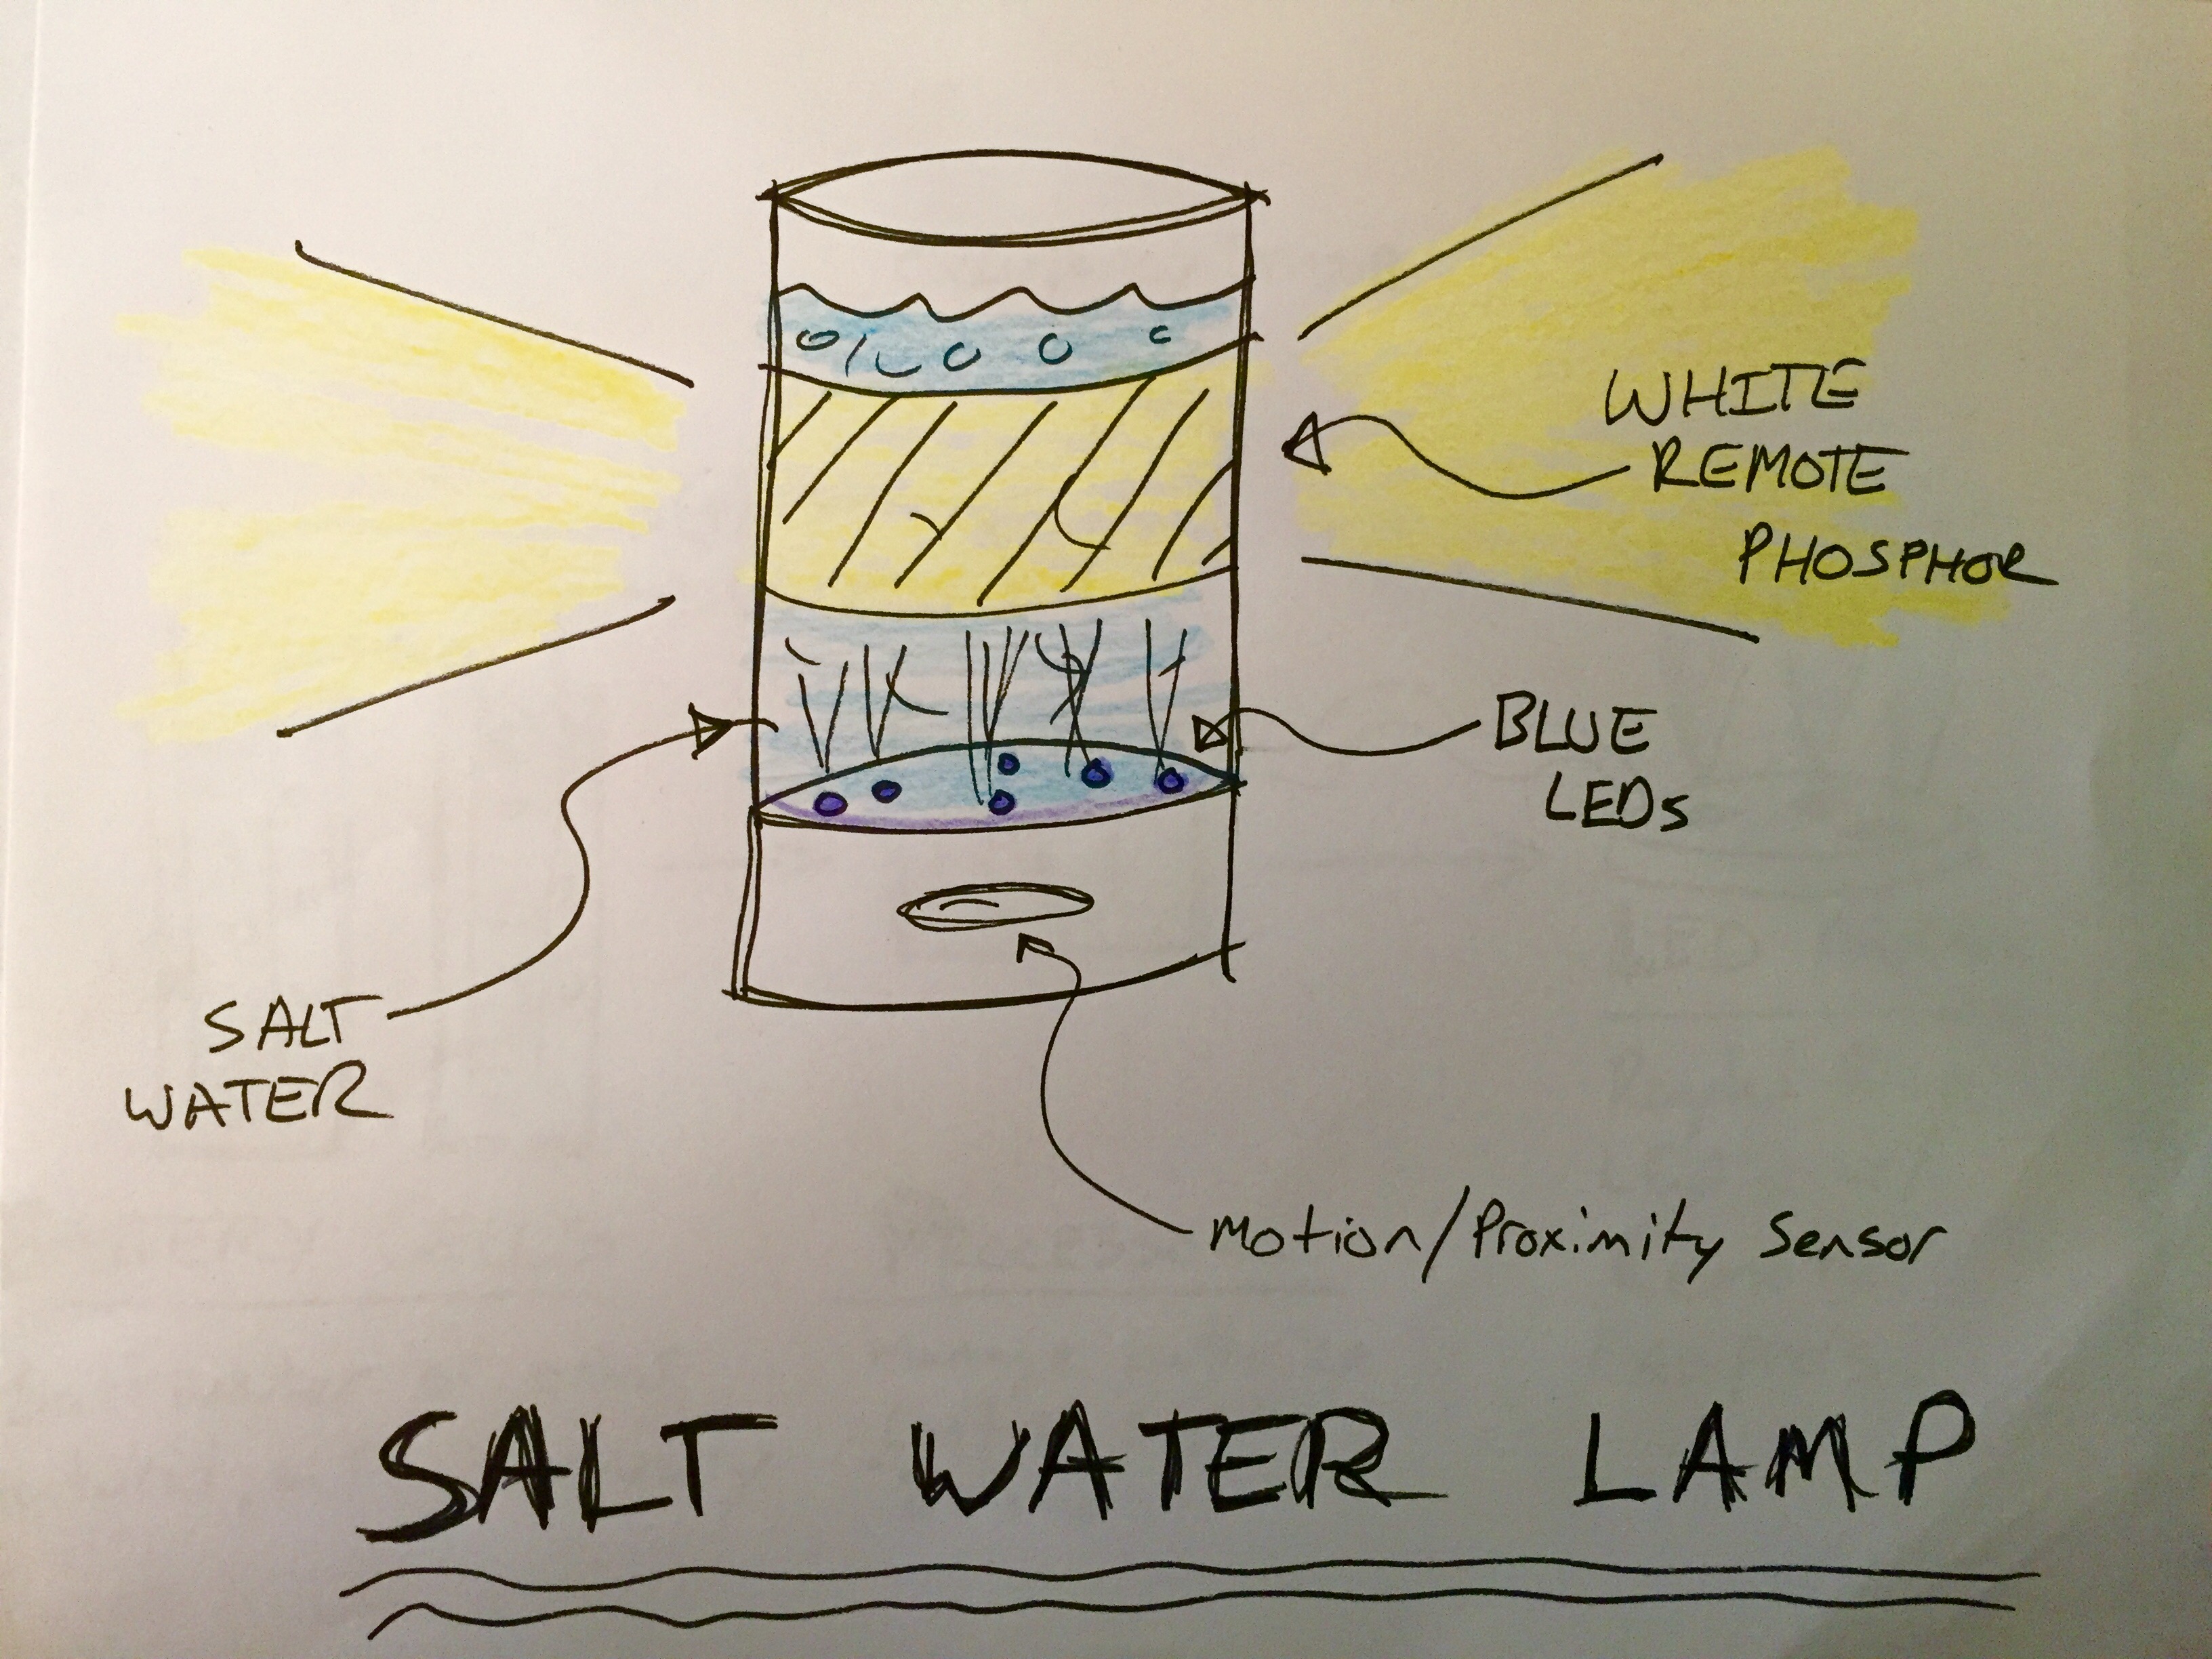 WHITE
REMOTE
PHOSPHOR
BLUE
LEDs
SALT
WATER
Motion/Proximity Sensor
SALT WATER LAMP